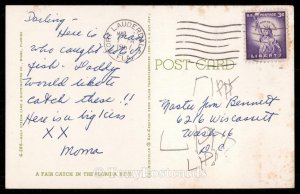 Darling -
Here is a man
who caught lots of
fish. Daddy
would like to
catch these!!
Here is a big kiss
X X
Moma
A FAIR CATCH IN THE FLORIDA SUN
FORT LAUDERDALE
FLA
U.S. POSTAGE
3¢
LIBERTY
POST CARD
Jim Bennett
6216 Wiscasset
Wash 16
D.C.